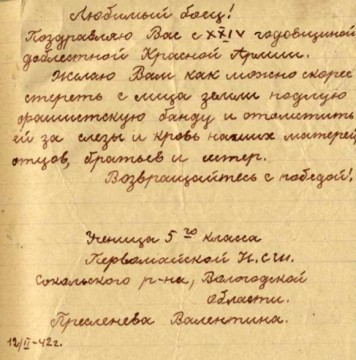 Любимый боец!
Поздравляю Вас с XXIV годовщиной
доблестной Красной Армии.
Желаю Вам как можно скорее
стереть с лица земли подлую
фашистскую банду и отомстить
ей за слезы и кровь наших матерей,
отцов, братьев и сестер.
Возвращайтесь с победой!
Ученица 5го класса
Первомайской Н.С.Ш.
Сокольского р-на, Вологодской
области.
Преснева Валентина.
12/II-42г.